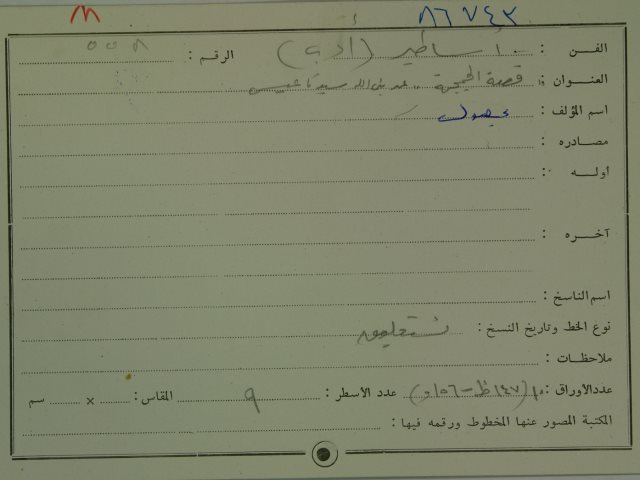 ٨٦٧٤٣
الفـــن : أساطير (أدب) الرقم : ٥٥٨
العنـــوان : قصة الجمجمة
اسم المؤلف : مجهول
مصـادره :
أولـــه :
آخـــره :
اسم الناسخ :
نوع الخط وتاريخ النسخ : نستعليق
ملاحظـات :
عدد الأوراق : ١٠ (١٤٧ظ – ١٥٦و) عدد الأسطر : ٩ المقاس : × سم
المكتبة المصور عنها المخطوط ورقمه فيها :